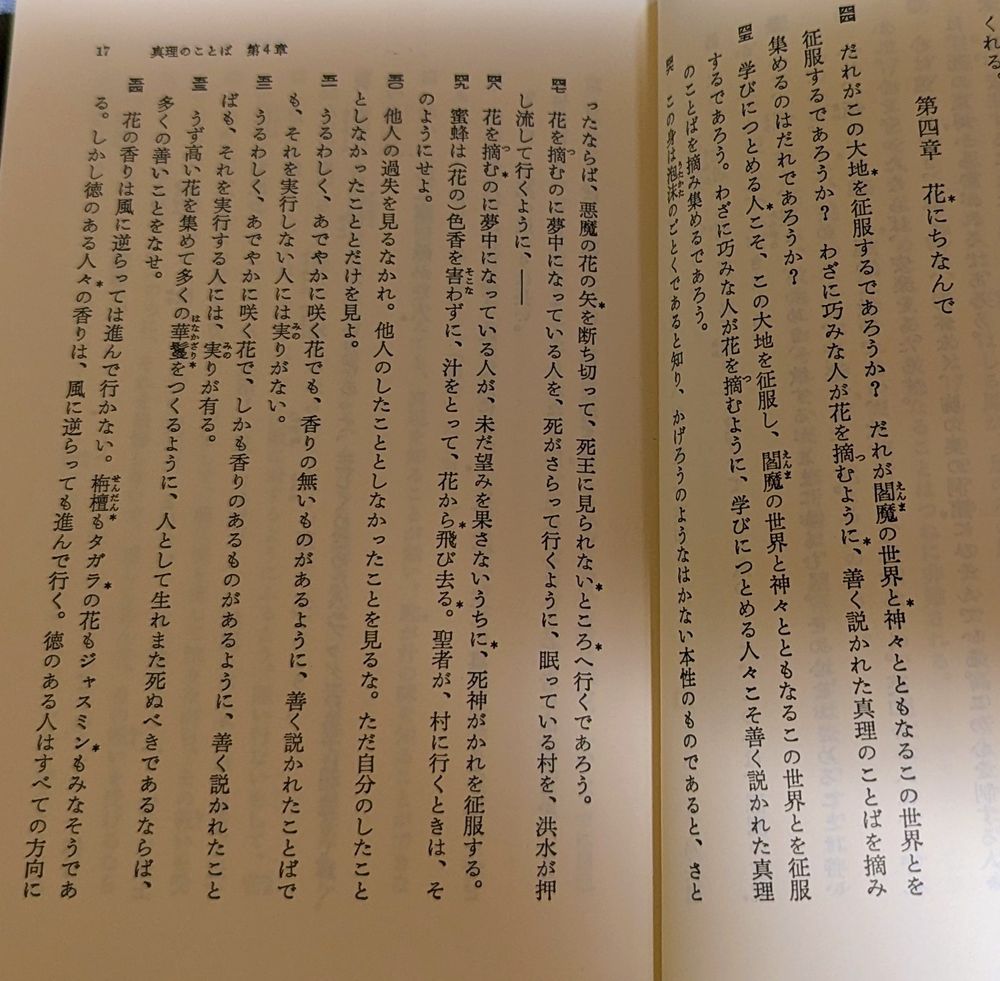 くれる。
第四章　花*にちなんで
四四　だれがこの大地*を征服するであろうか？　だれが閻魔の世界と*神々とともなるこの世界とを
征服するであろうか？　わざに巧みな人が花を摘むように*、善く説かれた真理のことばを摘み
集めるのはだれであろうか？
四五　学びにつとめる人*こそ、この大地を征服し、閻魔の世界と神々とともなるこの世界とを征服
するであろう。わざに巧みな人が花を摘むように、学びにつとめる人々こそ善く説かれた真理
のことばを摘み集めるであろう。
四六　この身は泡沫のごとくであると知り、かげろうのようなはかない本性のものであると、さと
17　真理のことば　第4章
ったならば、悪魔の花の矢*を断ち切って、死王に見られない*ところ*へ行くであろう。
四七　花を摘む*のに夢中になっている人を、死がさらって行くように、眠っている村を、洪水が押
し流して行くように、――
四八　花を摘む*のに夢中になっている人が、未だ望みを果さないうちに*、死神がかれを征服する。
四九　蜜蜂は（花の）色香を害わずに、汁をとって、花から*飛び去る*。聖者が、村に行くときは、そ
のようにせよ。
五〇　他人の過失を見るなかれ。他人のしたこととしなかったことを見るな。ただ自分のしたこと
としなかったこととだけを見よ。
五一　うるわしく、あでやかに咲く花でも、香りの無いものがあるように、善く説かれたことばで
も、それを実行しない人には実りがない。
五二　うるわしく、あでやかに咲く花で、しかも香りのあるものがあるように、善く説かれたこと
ばも、それを実行する人には、実りが有る。
五三　うず高い花を集めて多くの華鬘*をつくるように、人として生れまた死ぬべきであるならば、
多くの善いことをなせ。
五四　花の香りは風に逆らっては進んで行かない。栴檀*もタガラ*の花もジャスミン*もみなそうであ
る。しかし徳のある人々*の香りは、風に逆らっても進んで行く。徳のある人はすべての方向に